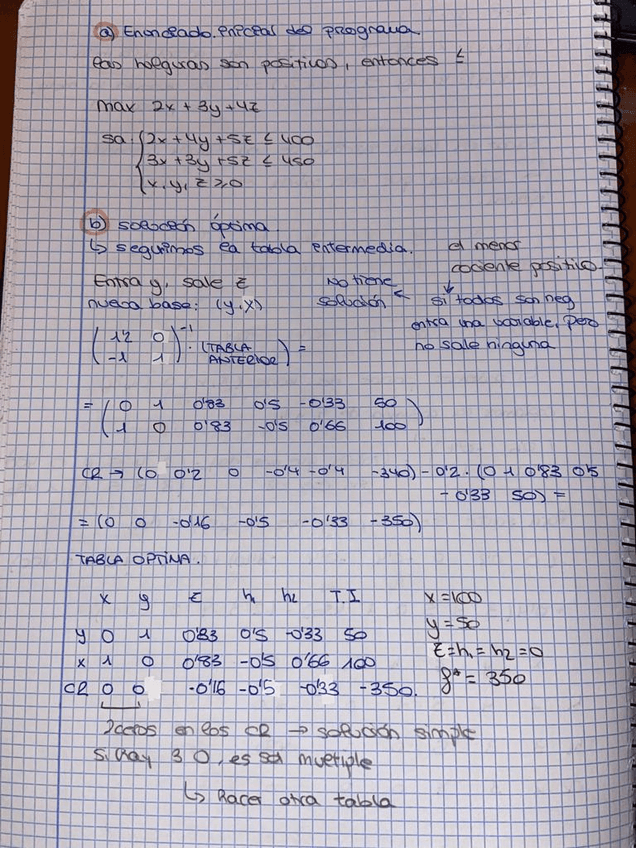 a) Enunciado inicial del programa
las holguras son positivas, entonces ≤
max 2x + 3y + 4z
sa: 2x + 4y + 5z ≤ 400
3x + 3y + 5z ≤ 450
x, y, z ≥ 0
b) solución óptima
↳ seguimos la tabla intermedia.
el menor cociente positivo.
Entra y, sale z
nueva base: (y, x)
No tiene solución ← si todos son neg
entra una variable, pero
no sale ninguna
( 1'2 0 )⁻¹
( -1 1 ) · (TABLA ANTERIOR) =
= ( 0 1 0'83 0'5 -0'33 50 )
( 1 0 0'83 -0'5 0'66 100 )
CR → (0 0'2 0 -0'4 -0'4 -340) - 0'2 · (0 1 0'83 0'5
- 0'33 50) =
= (0 0 -0'16 -0'5 -0'33 -350)
TABLA OPTIMA.
x y z h₁ h₂ T.I
y 0 1 0'83 0'5 -0'33 50
x 1 0 0'83 -0'5 0'66 100
CR 0 0 -0'16 -0'5 -0'33 -350.
x = 100
y = 50
z = h₁ = h₂ = 0
f* = 350
2 ceros en los CR → solución simple
Si hay 3 0, es sol multiple
↳ Hacer otra tabla